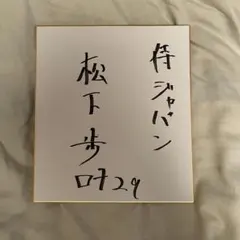 侍ジャパン
松下歩
叶29